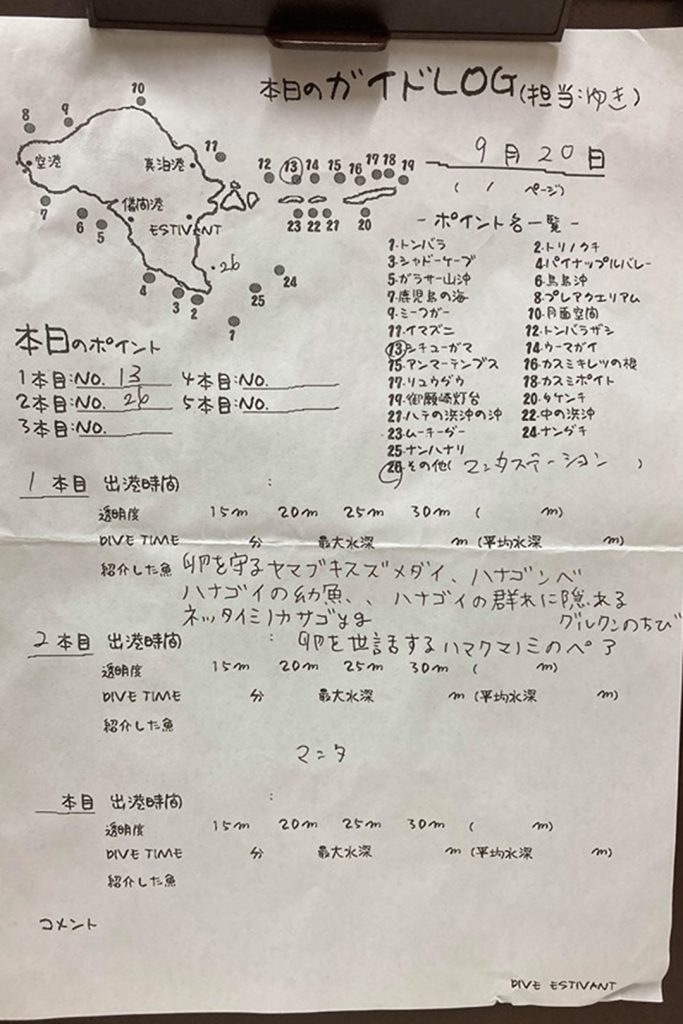 本日のガイドLOG(担当:ゆき)
9月20日
( / ページ)
10
8 9
空港
真泊港
11
12 13 14 15 16 17 18 19
7
6
5
儀間港
ESTIVANT
23 22 21 20
26
24
25
4
3
2
1
- ポイント名一覧 -
1.トンバラ 2.トリノクチ
3.シャドーケーブ 4.パイナップルバレー
5.ガラサー山沖 6.鳥島沖
7.鹿児島の海 8.プレアクエリアム
9.ミーフガー 10.月面空間
11.イマズニ 12.トンバラザシ
13.シチューガマ 14.ウーマガイ
15.アンマーテンプス 16.カスミキレツの根
17.リュウグウ 18.カスミポイント
19.御願崎灯台 20.タケンチ
21.ハテの浜沖の沖 22.中の浜沖
23.ムーチーグー 24.ナングチ
25.ナンハナリ
26.その他( マンタステーション )
本日のポイント
1本目:NO. 13 4本目:NO.
2本目:NO. 26 5本目:NO.
3本目:NO.
1 本目 出港時間 :
透明度 15m 20m 25m 30m ( m)
DIVE TIME 分 最大水深 m (平均水深 m)
紹介した魚 卵を守るヤマブキスズメダイ、ハナゴンベ
ハナゴイの幼魚、、ハナゴイの群れに隠れる
ネッタイミノカサゴyg グルクンのちび
2 本目 出港時間 : 卵を世話するハマクマノミのペア
透明度 15m 20m 25m 30m ( m)
DIVE TIME 分 最大水深 m (平均水深 m)
紹介した魚
マンタ
本目 出港時間 :
透明度 15m 20m 25m 30m ( m)
DIVE TIME 分 最大水深 m (平均水深 m)
紹介した魚
コメント
DIVE ESTIVANT